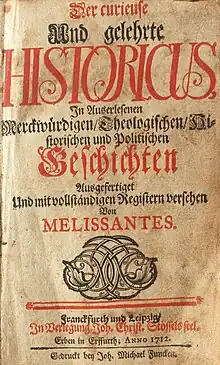 Der curieuse
Und gelehrte
HISTORICUS,
In Auserlesenen
Merckwürdigen/Theologischen/Hi-
storischen und Politischen
Geschichten
Ausgefertiget
Und mit vollständigen Registern versehen
Von
MELISSANTES.
Franckfurth und Leipzig/
In Verlegung Joh. Christ. Stössels seel.
Erben in Erffurth; ANNO 1712.
Gedruckt bey Joh. Michael Funcken.